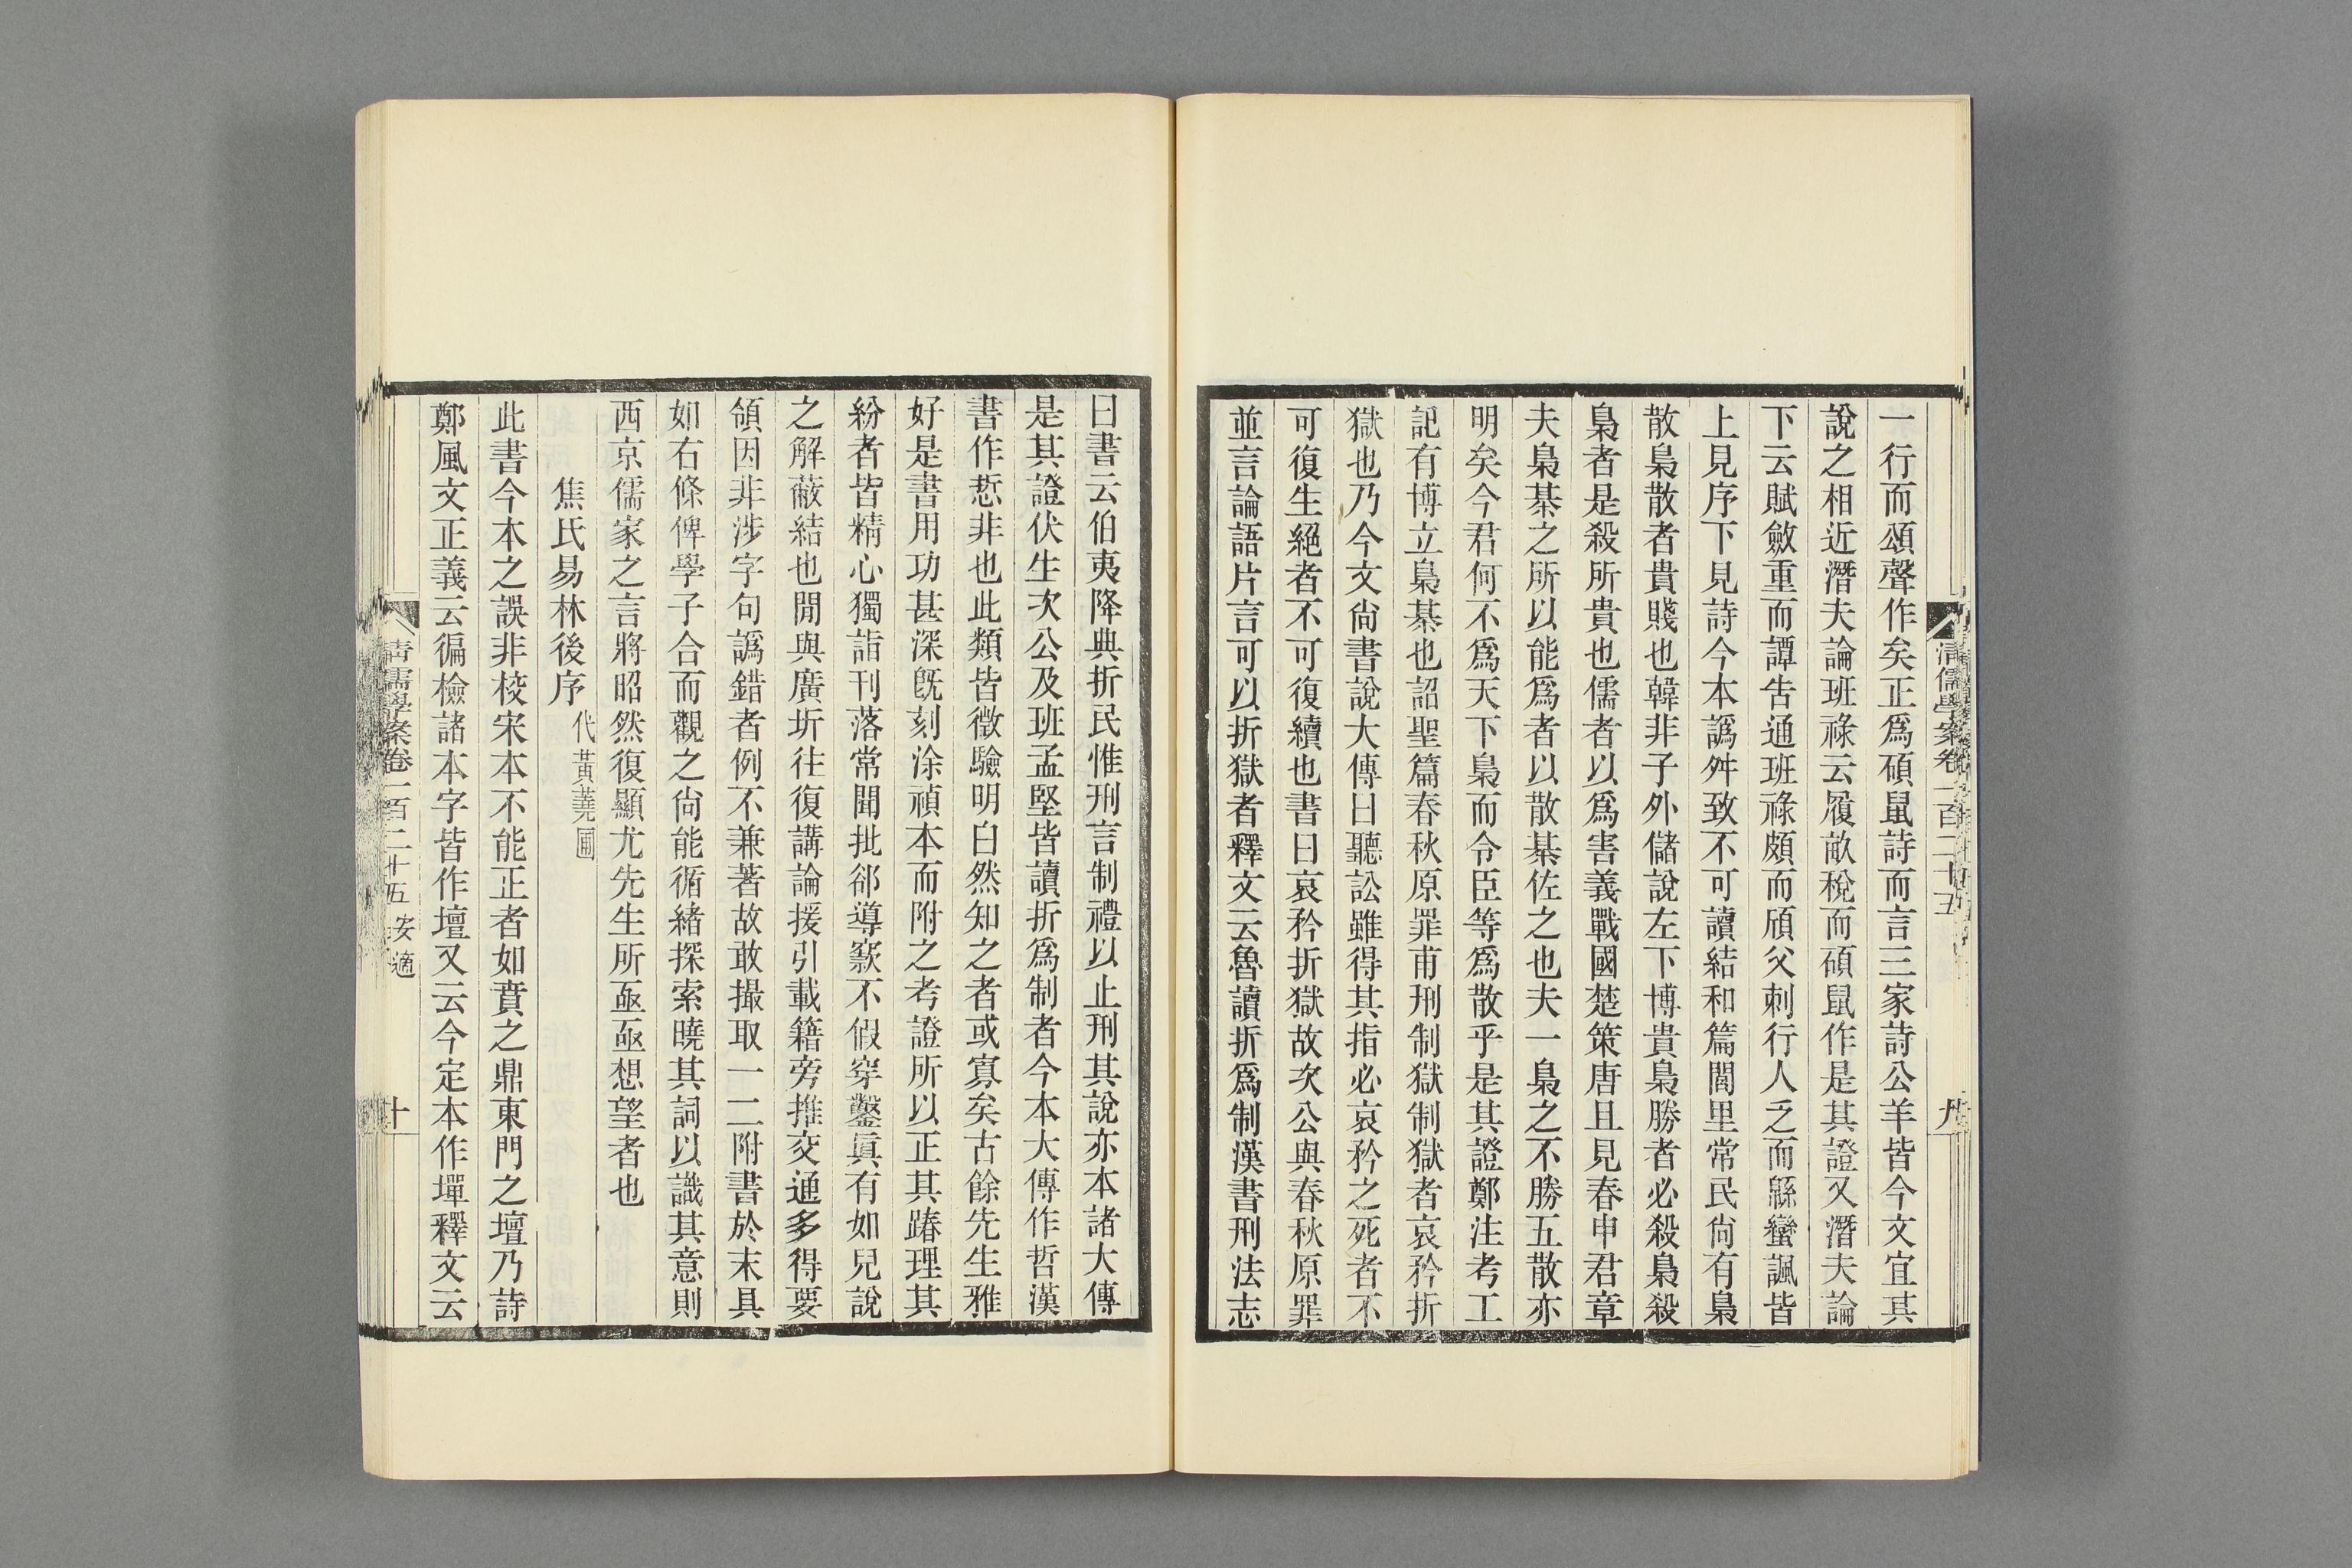 清儒學案卷一百二十五
九
一行而頌聲作矣正爲碩鼠詩而言三家詩公羊皆今文宜其
說之相近潛夫論班祿云履畝稅而碩鼠作是其證又潛夫論
下云賦斂重而譚吿通班祿頗而頎父刺行人乏而緜蠻諷皆
上見序下見詩今本譌舛致不可讀結和篇閭里常民尙有梟
散梟散者貴賤也韓非子外儲說左下博貴梟勝者必殺梟殺
梟者是殺所貴也儒者以爲害義戰國楚策唐且見春申君章
夫梟棊之所以能爲者以散棊佐之也夫一梟之不勝五散亦
明矣今君何不爲天下梟而令臣等爲散乎是其證鄭注考工
記有博立梟棊也詔聖篇春秋原罪甫刑制獄制獄者哀矜折
獄也乃今文尙書說大傳曰聽訟雖得其指必哀矜之死者不
可復生絕者不可復續也書曰哀矜折獄故次公與春秋原罪
並言論語片言可以折獄者釋文云魯讀折爲制漢書刑法志
曰書云伯夷降典折民惟刑言制禮以止刑其說亦本諸大傳
是其證伏生次公及班孟堅皆讀折爲制者今本大傳作哲漢
書作悊非也此類皆徵驗明白然知之者或寡矣古餘先生雅
好是書用功甚深旣刻涂禎本而附之考證所以正其踳理其
紛者皆精心獨詣刊落常聞批郤導窾不假穿鑿眞有如兒說
之解蔽結也閒與廣圻往復講論援引載籍旁推交通多得要
領因非涉字句譌錯者例不兼著故敢撮取一二附書於末具
如右條俾學子合而觀之尙能循緒探索曉其詞以識其意則
西京儒家之言將昭然復顯尤先生所亟亟想望者也
焦氏易林後序代黃蕘圃
此書今本之誤非校宋本不能正者如賁之鼎東門之壇乃詩
鄭風文正義云徧檢諸本字皆作壇又云今定本作墠釋文云
清儒學案卷一百二十五 安適
十